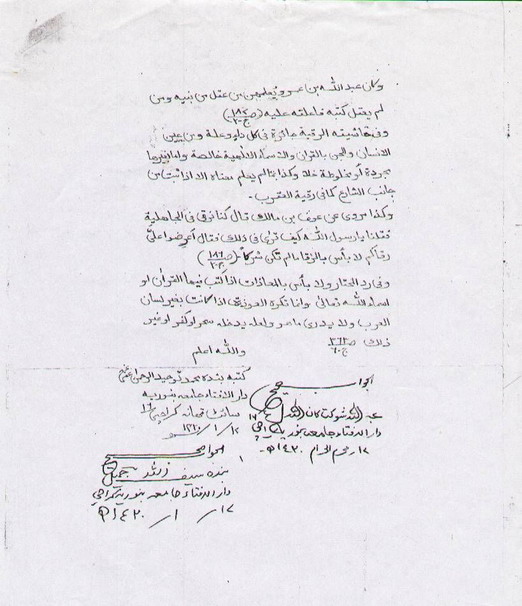 وكان عبد الله بن عمرو يعلمهن من عقل من بنيه ومن
لم يعقل كتبه فاعلقه عليه (ص١٨٢ ج٢)
وفى حاشيته الرقية جائزة فى كل داء وعلة ومن عين
الانسان والجن بالقران والاسماء الالهية خالصة واما بغيرها
مجردة أو مخلوطة فلا وكذا بما لم يعلم معناه الا اذا ثبت من
جانب الشارع كما فى رقية العقرب۔
وكذا مروى عن عوف بن مالك قال كنا نرقى فى الجاهلية
فقلنا يا رسول الله كيف ترى فى ذلك فقال أعرضوا علىّ
رقاكم لا بأس بالرقا ما لم تكن شركاً۔ (ص١٨٦ ج٢)
وفى رد المحتار ولا بأس بالمعاذات اذا كتب فيها القران او
اسماء الله تعالىٰ وانما تكره العوذة اذا كانت بغير لسان
العرب ولا يدرى ما هو ولعله يدخله سحر او كفر او غير
ذلك
والله اعلم
كتبه بنده محمد توحيد الرحمن
دار الافتاء جامعه بنوريه
سائٹ كراچى ١٦
الجواب صحيح
عبد الله شوكت كان الله له
دار الافتاء جامعه بنوريه كراچى
١٧ محرم الحرام ١٤٢٠ھ
الجواب صحيح
بنده سيف الله جميل
دار الافتاء جامعه بنوريه كراچى
١٧ / ١ / ١٤٢٠ھ